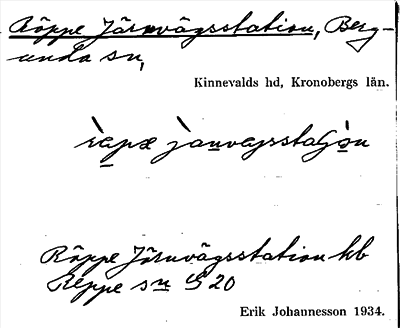 Räppe Järnvägsstation, Berg-
unda sn,
Kinnevalds hd, Kronobergs län.
Räppe Järnvägsstation kb
Reppe sn S 20
Erik Johannesson 1934.